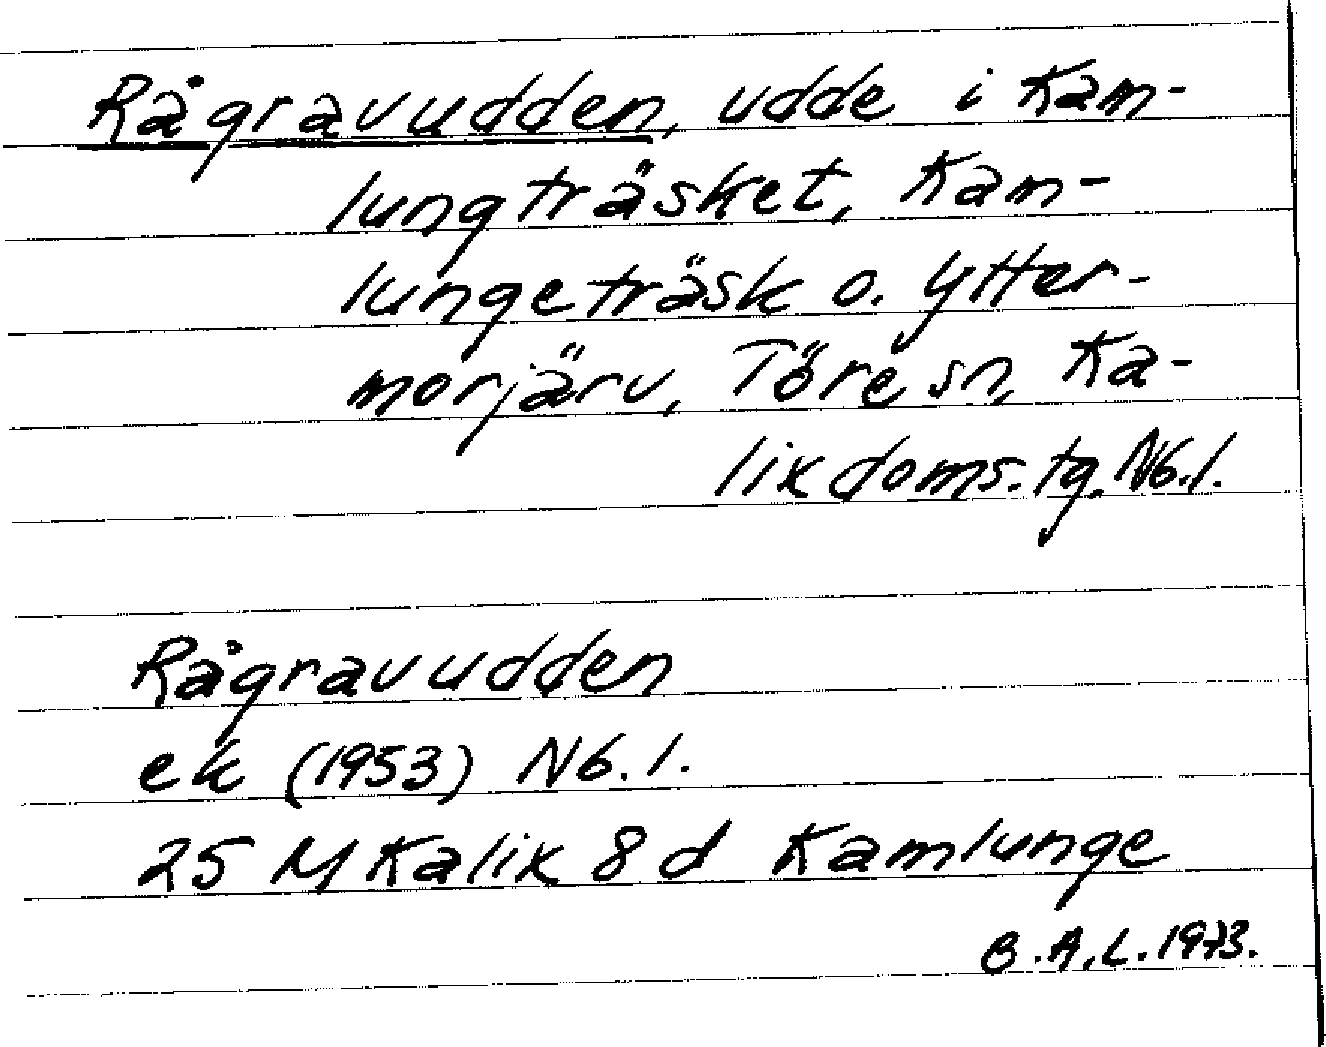 Rågravudden, udde i Kam-
lungträsket, Kam-
lungeträsk o. Ytter-
morjärv, Töre sn, Ka-
lix doms. tg. Nb. l.
Rågravudden
ek (1953) Nb. l.
25 M Kalix 8 d Kamlunge
B.A.L. 1973.